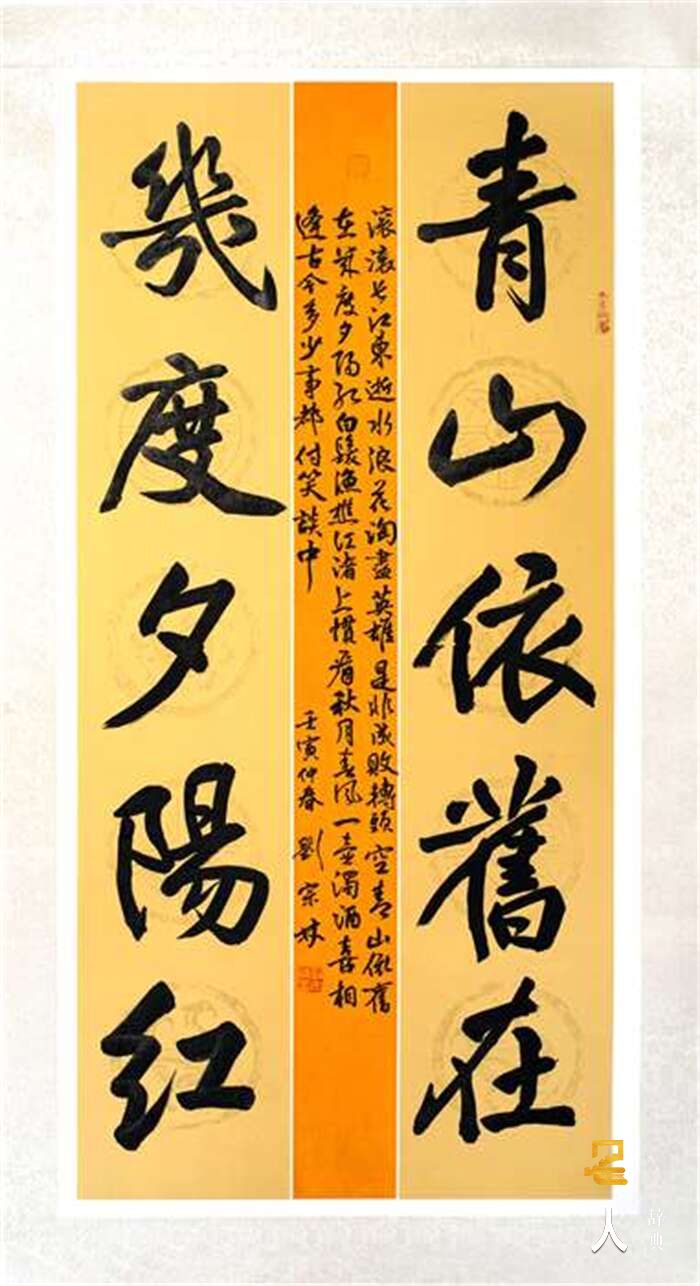 青山依舊在
滚滚长江東逝水浪花淘盡英雄是非成敗轉頭空青山依舊
在幾度夕陽红白髮漁樵江渚上慣看秋月春风一壺濁酒喜相
逢古今多少事都付笑談中
壬寅仲春 劉宗林
幾度夕陽红
名人
辞典